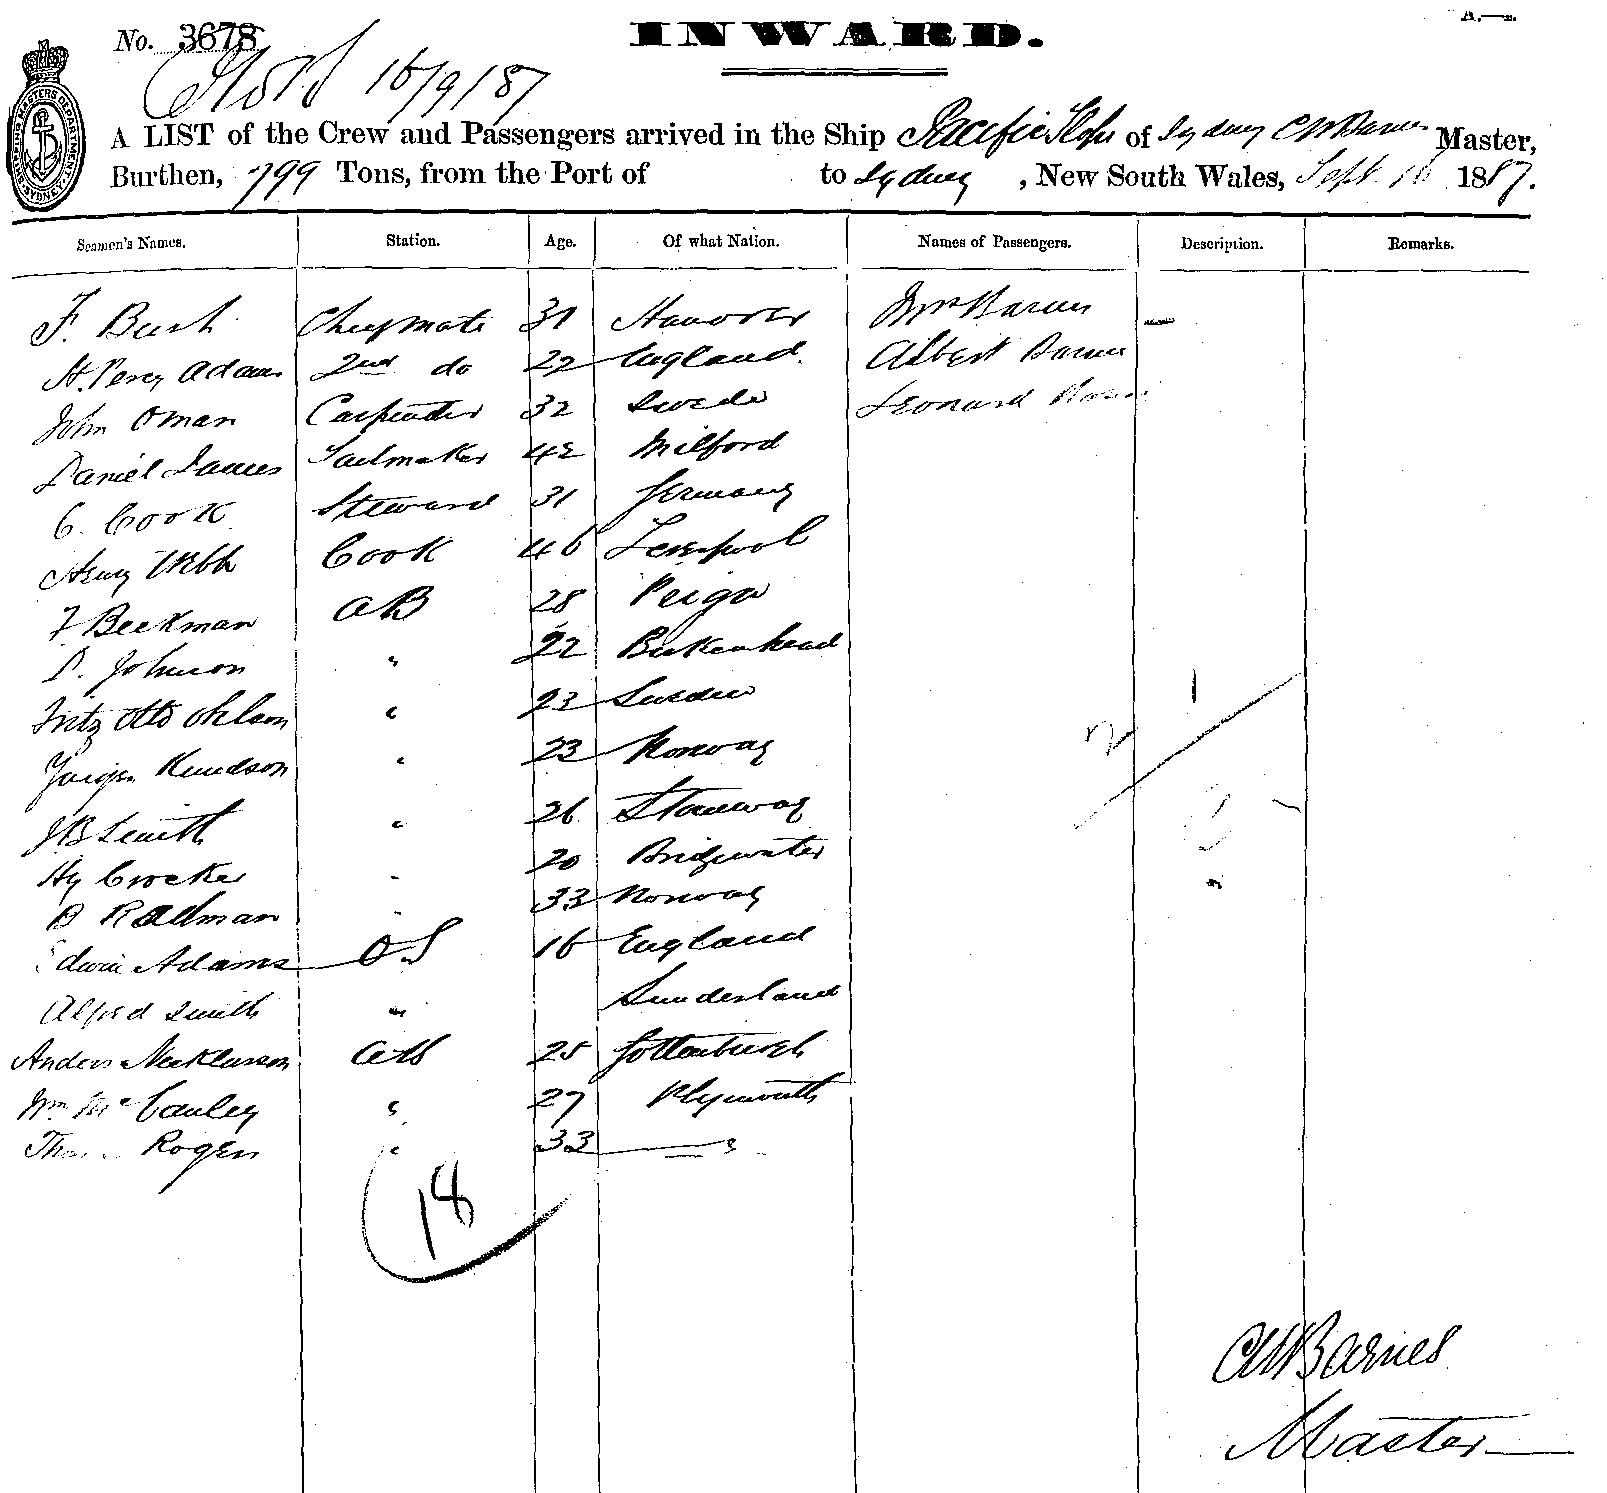 No. 3678
INWARD.
16/9/87
A LIST of the Crew and Passengers arrived in the Ship Pacific Slope of Sydney C W Barnes Master,
Burthen, 799 Tons, from the Port of to Sydney, New South Wales, Sept 16 1887.
Seamen's Names. Station. Age. Of what Nation. Names of Passengers. Description. Remarks.
F. Bush Chief mate 31 Hanover Mrs Barnes —
H. Percy Adams 2nd do 22 England Albert Barnes
John Oman Carpenter 32 Swede Leonard Barnes
Daniel James Sailmaker 42 Milford
C. Cook Steward 31 Germany
Henry Webb Cook 46 Liverpool
F Beekman AB 28
P. Johnson " 22 Birkenhead
Fritz Otto Ohlson " 23 Sweden
Jurgen Knudson " 23 Norway
J B Smith " 26
Hy Crocker " 20 Bridgwater
B Redman " 33 Norway
Edwin Adams OS 16 England
Alfred Smith " Sunderland
Anders Necklasson AB 25 Gottenburgh
Wm McCauley " 27 Plymouth
Thos Rogers " 33 — "
18
2 1
C W Barnes
Master